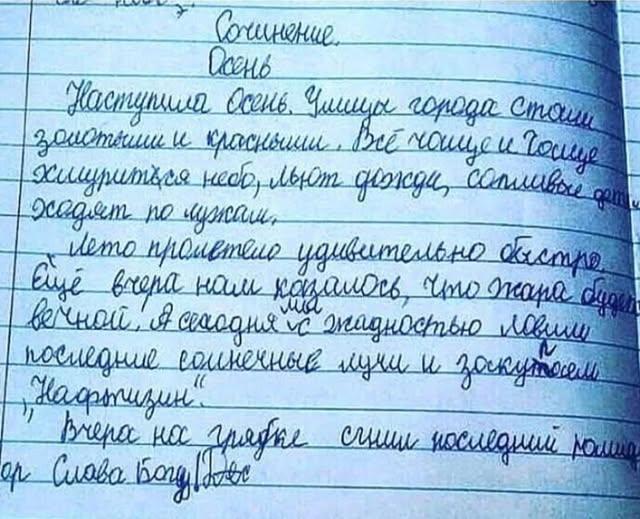 Сочинение.
Осень
Наступила Осень. Улицы города стали
золотыми и красными. Всё чаще и чаще
хмуриться небо, льют дожди, сопливые дети
ходят по лужам.
Лето пролетело удивительно быстро.
Ещё вчера нам казалось, что жара будет
вечной. А сегодня мы с жадностью ловим
последние солнечные лучи и закупаем
"Нафтизин".
Вчера на грядке сгнил последний помид
ор Слава Богу!